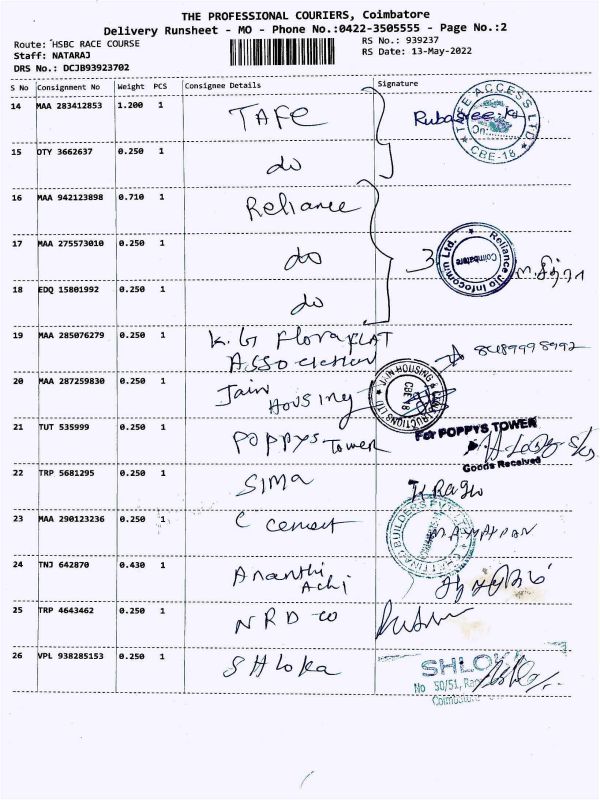 THE PROFESSIONAL COURIERS, Coimbatore
Delivery Runsheet - MO - Phone No.:0422-3505555 - Page No.:2
Route: HSBC RACE COURSE
RS No.: 939237
Staff: NATARAJ
RS Date: 13-May-2022
DRS No.: DCJB93923702
S No Consignment No Weight PCS Consignee Details Signature
14 MAA 283412853 1.200 1 TAFE Rubasree.K
TAFE ACCESS LTD
CBE-18
15 OTY 3662637 0.250 1 do
16 MAA 942123898 0.710 1 Reliance
17 MAA 275573010 0.250 1 do 3
Reliance Jio Infocomm Ltd.
Coimbatore
18 EDQ 15801992 0.250 1 do
19 MAA 285076279 0.250 1 K.G FloraFLAT
Association
8489998992
20 MAA 287259830 0.250 1 Jain
Housing
JAIN HOUSING & CONSTRUCTIONS LTD
CBE 18
21 TUT 535999 0.250 1 Poppys Tower
For POPPYS TOWER
Goods Received
22 TRP 5681295 0.250 1 SIMA
23 MAA 290123236 0.250 1 C cement
BUILDERS PVT
24 TNJ 642870 0.430 1 Ananthi
Achi
25 TRP 4643462 0.250 1 NRD co
26 VPL 938285153 0.250 1 Shloka
SHLOK
No 50/51,